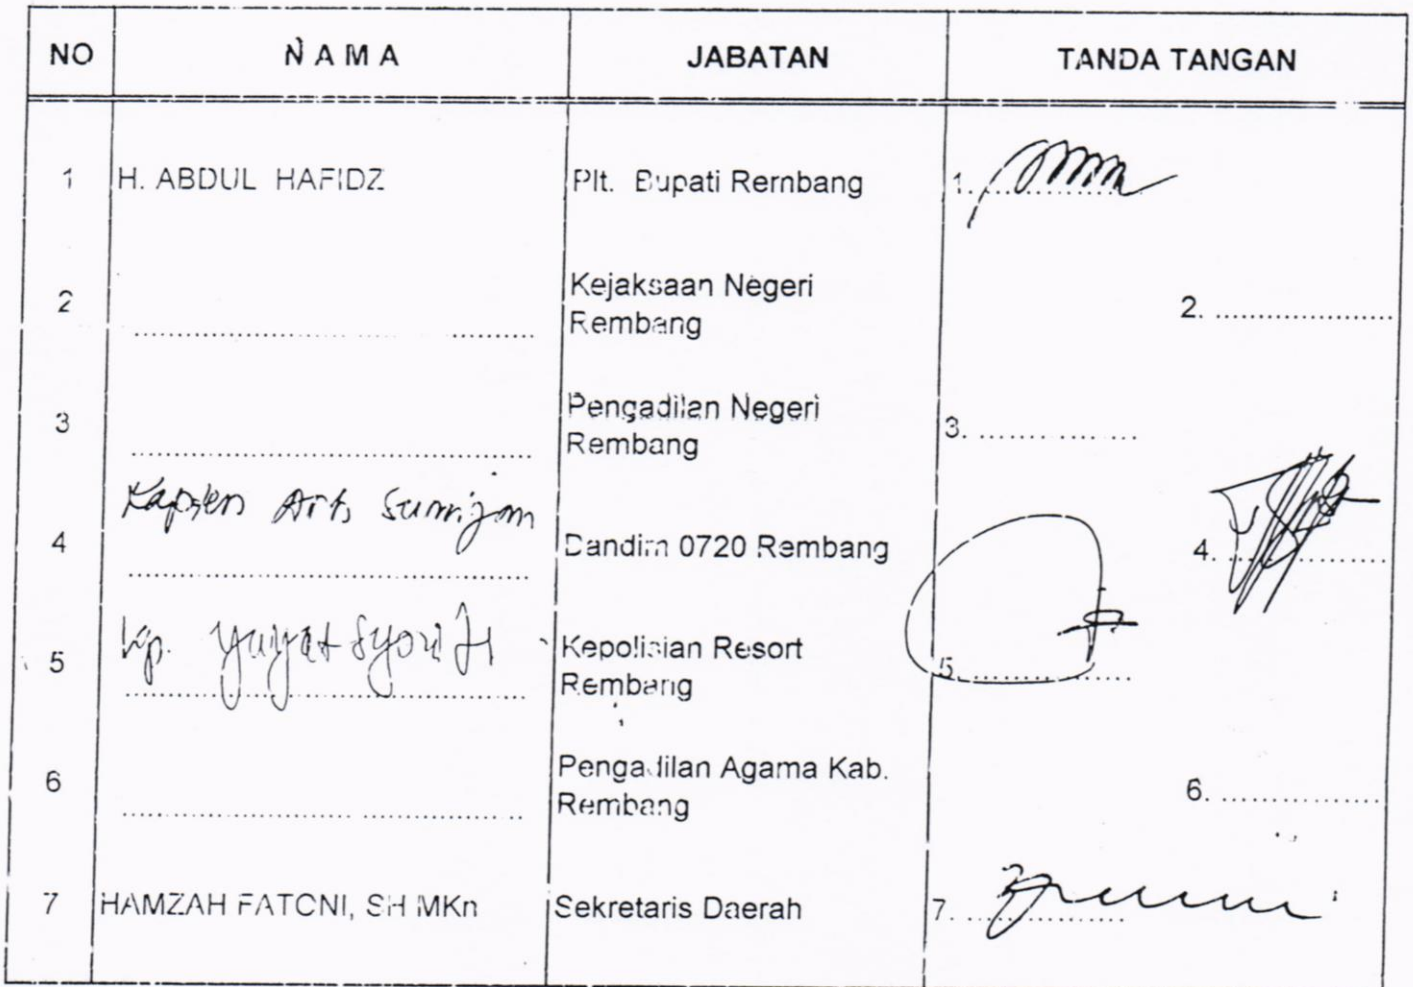 NO NAMA JABATAN TANDA TANGAN
1 H. ABDUL HAFIDZ Plt. Bupati Rembang 1. ....................
2 .................... Kejaksaan Negeri
Rembang 2. ....................
3 .................... Pengadilan Negeri
Rembang 3. ....................
4 Kapten Arh Sumijan Dandim 0720 Rembang 4. ....................
5 Kp. Yayat Kepolisian Resort
Rembang 5. ....................
6 .................... Pengadilan Agama Kab.
Rembang 6. ....................
7 HAMZAH FATONI, SH MKn Sekretaris Daerah 7. ....................